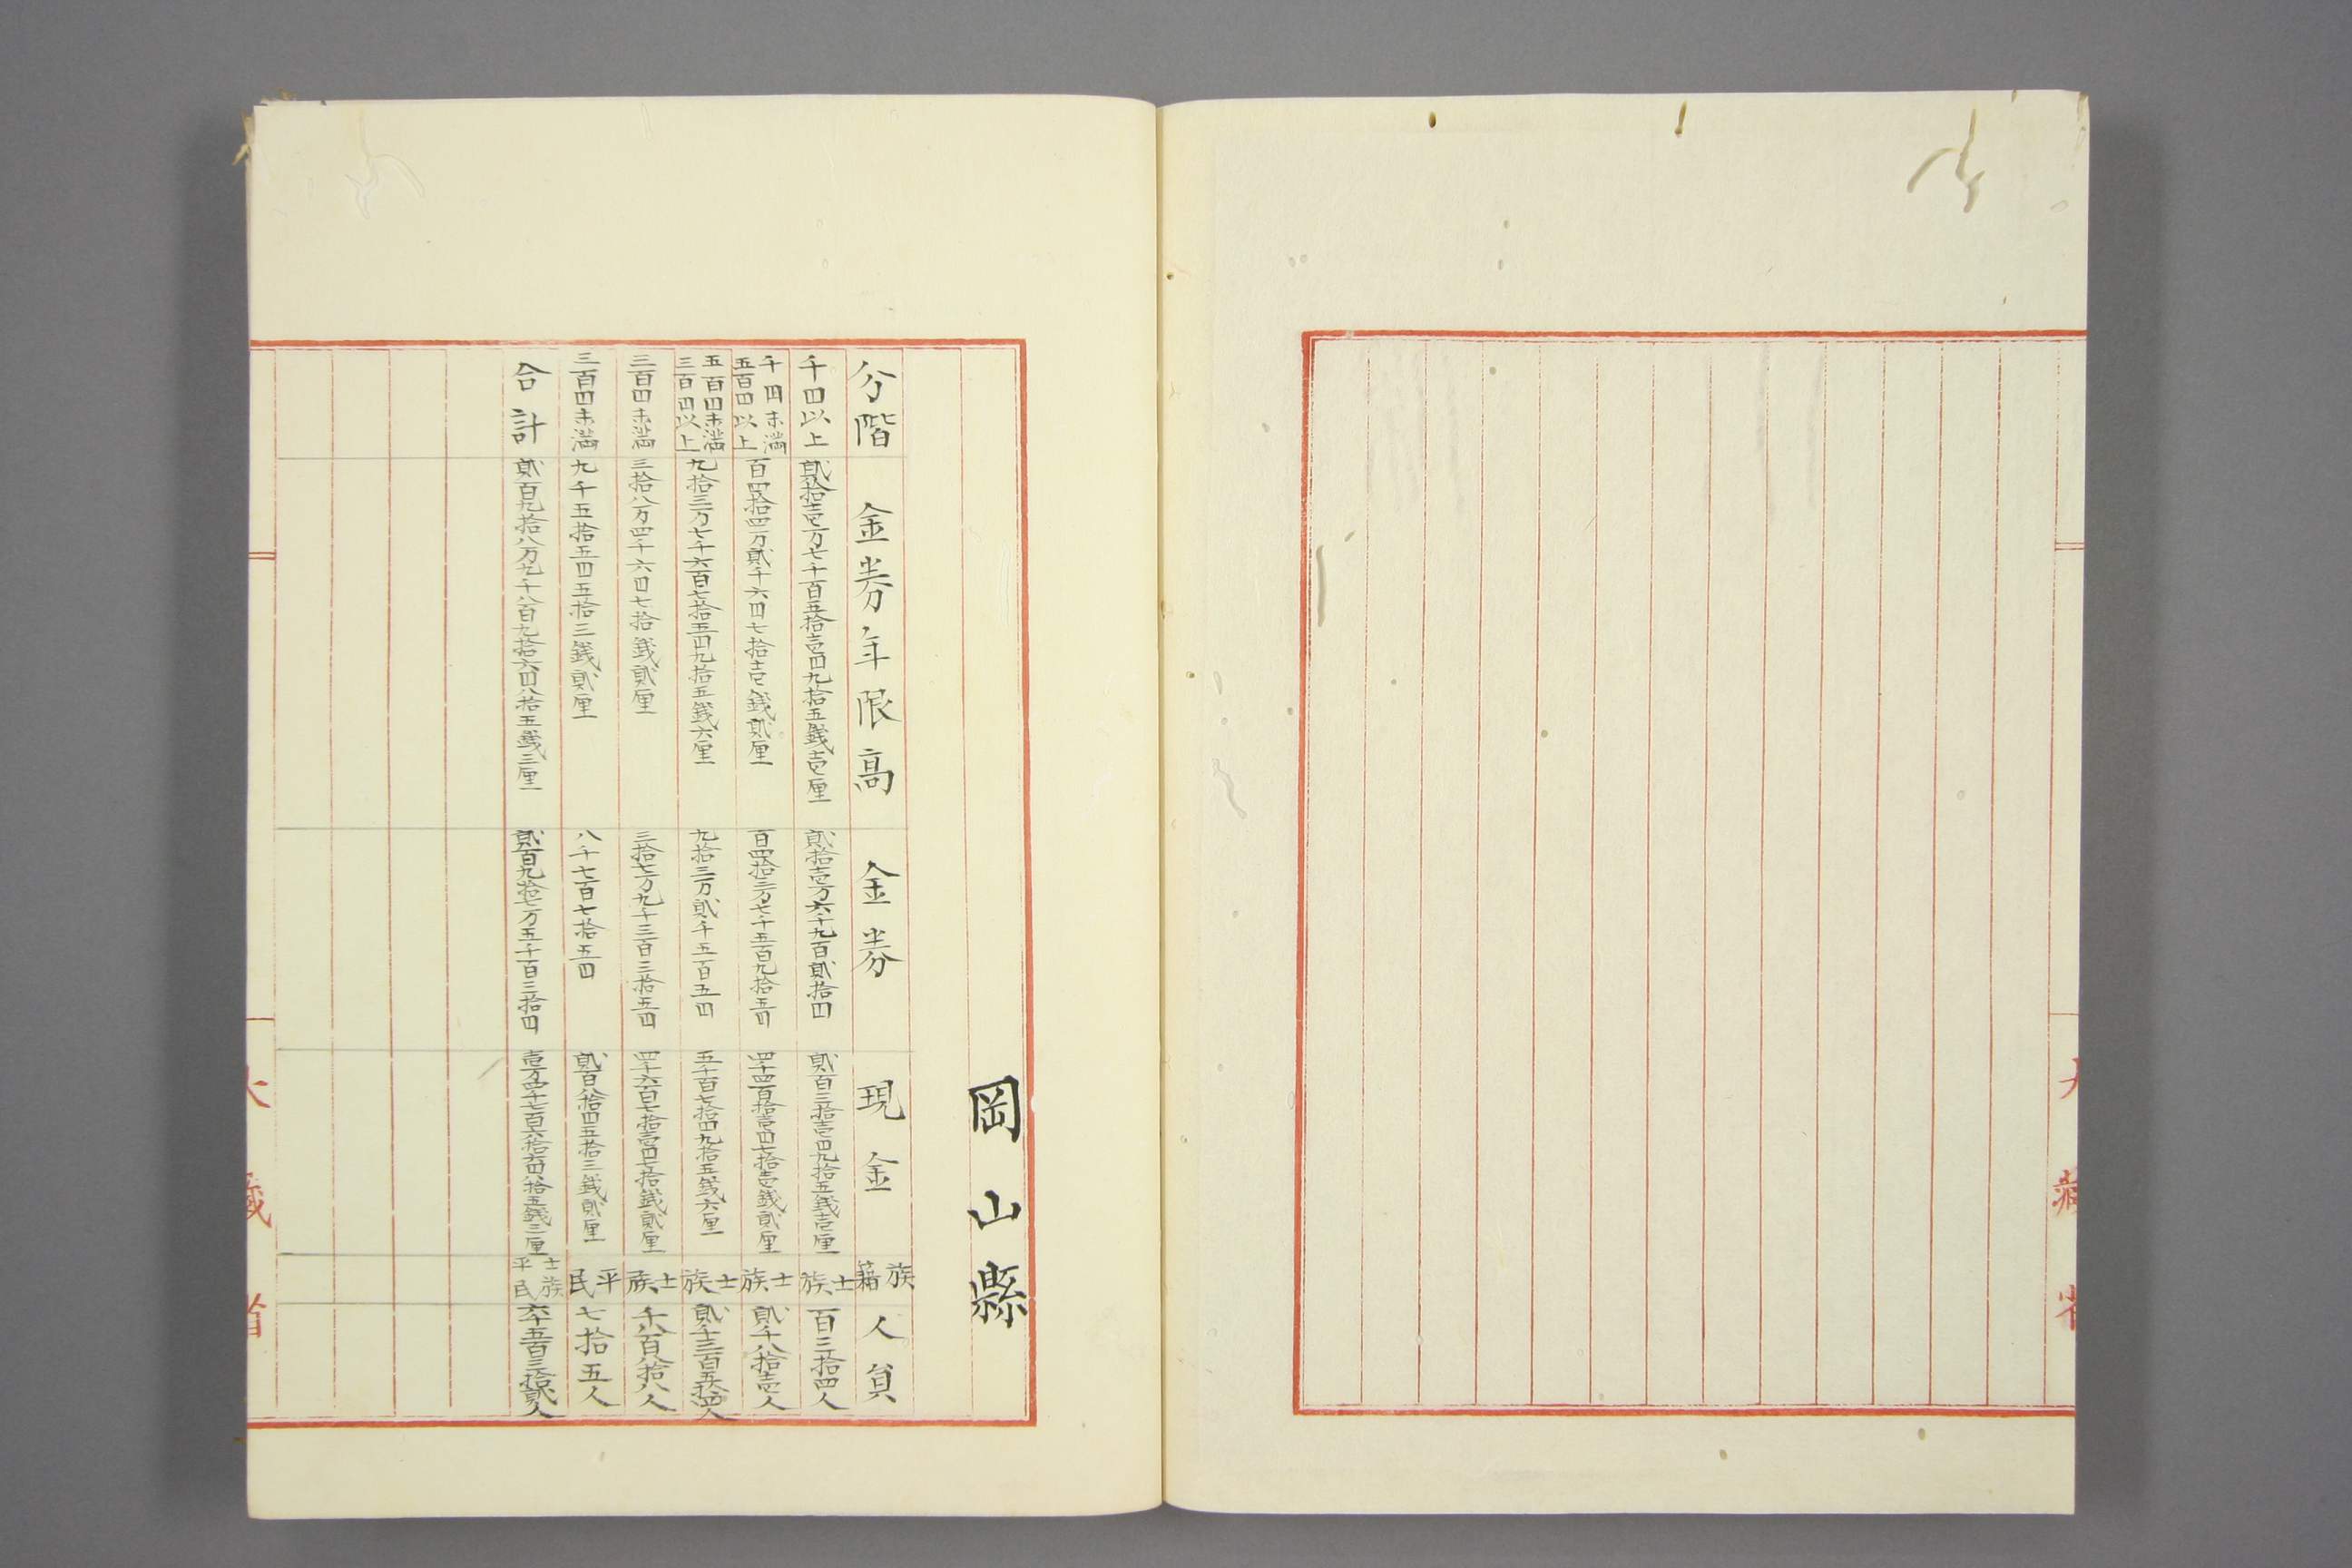 大藏省
岡山縣
分階 金券年限高 金券 現金 族籍 人員
千円以上 貳拾壱万七千百五拾壱円九拾五銭壱厘 貳拾壱万六千九百貳拾円 貳百三拾壱円九拾五銭壱厘 士族 百三拾四人
千円未満 五百円以上 百四拾四万貳千六円七拾壱銭貳厘 百四拾三万七千五百九拾五円 四千四百拾壱円七拾壱銭貳厘 士族 貳千八拾壱人
五百円未満 三百円以上 九拾三万七千六百七拾五円九拾五銭六厘 九拾三万貳千五百五円 五千百七拾円九拾五銭六厘 士族 貳千三百五拾四人
三百円未満 三拾八万四千六円七拾銭貳厘 三拾七万九千三百三拾五円 四千六百七拾壱円七拾銭貳厘 士族 千八百八拾八人
三百円未満 九千五拾五円五拾三銭貳厘 八千七百七拾五円 貳百八拾円五拾三銭貳厘 平民 七拾五人
合計 貳百九拾八万九千八百九拾六円八拾五銭三厘 貳百九拾七万五千百三拾円 壱万四千七百六拾六円八拾五銭三厘 士族 平民 六千五百三拾貳人
大藏省